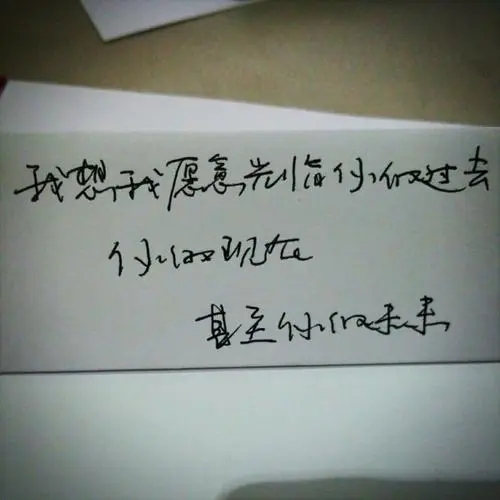 我想，我愿意光临你的过去
你的现在
甚至你的未来